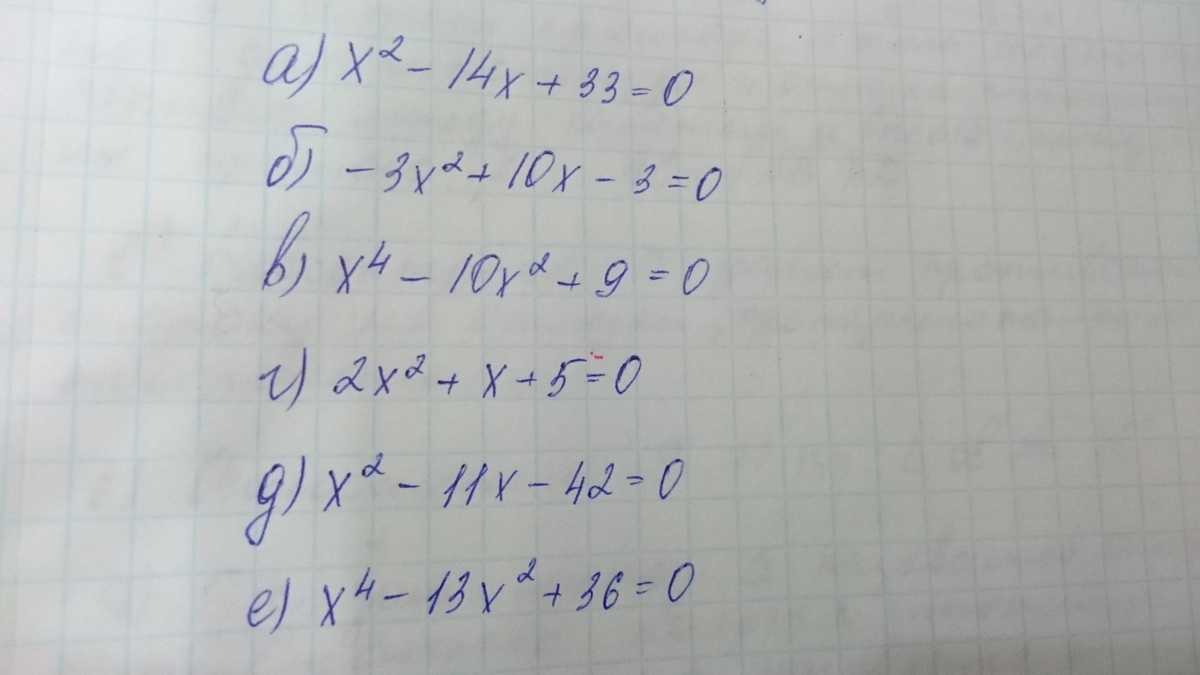 а) x² - 14x + 33 = 0
б) -3x² + 10x - 3 = 0
в) x⁴ - 10x² + 9 = 0
г) 2x² + x + 5 = 0
д) x² - 11x - 42 = 0
е) x⁴ - 13x² + 36 = 0